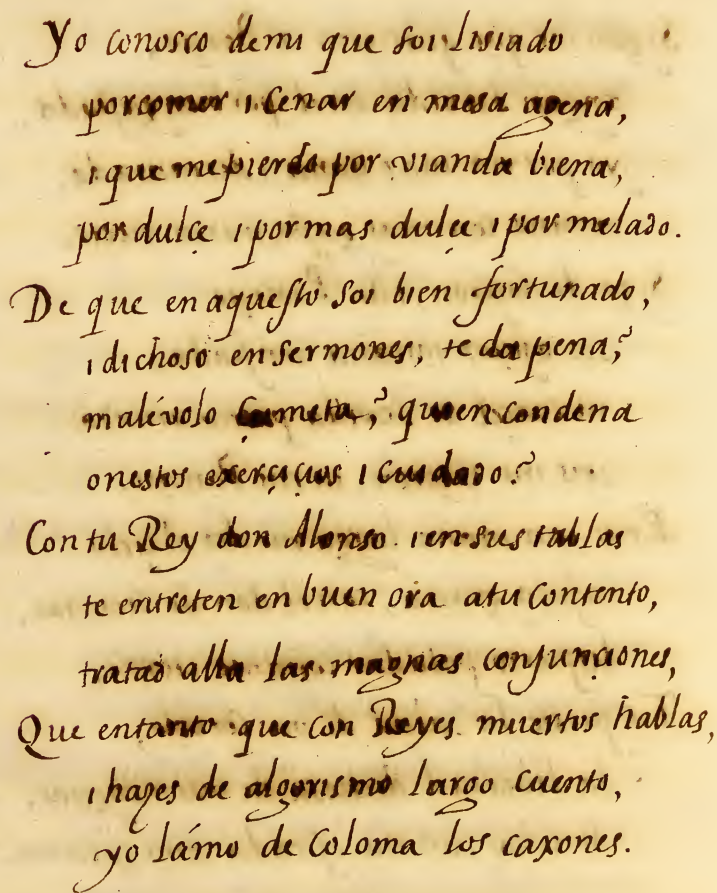 Yo conosco demi que soi lisiado
porcomer i cenar en mesa agena,
i que mepierdo por vianda buena,
por dulce i por mas dulce i por melado.
De que en aquesto soi bien fortunado,
i dichoso en sermones, te da pena,?
malévolo Cometa,? quien condena
onestos exerçiçios i cuidado?
Con tu Rey don Alonso i en sus tablas
te entreten en buen ora atu contento,
tratad alla las magnas conjunciones,
Que entanto que con Reyes muertos hablas,
i hazes de algorismo largo cuento,
yo lámo de Coloma los caxones.